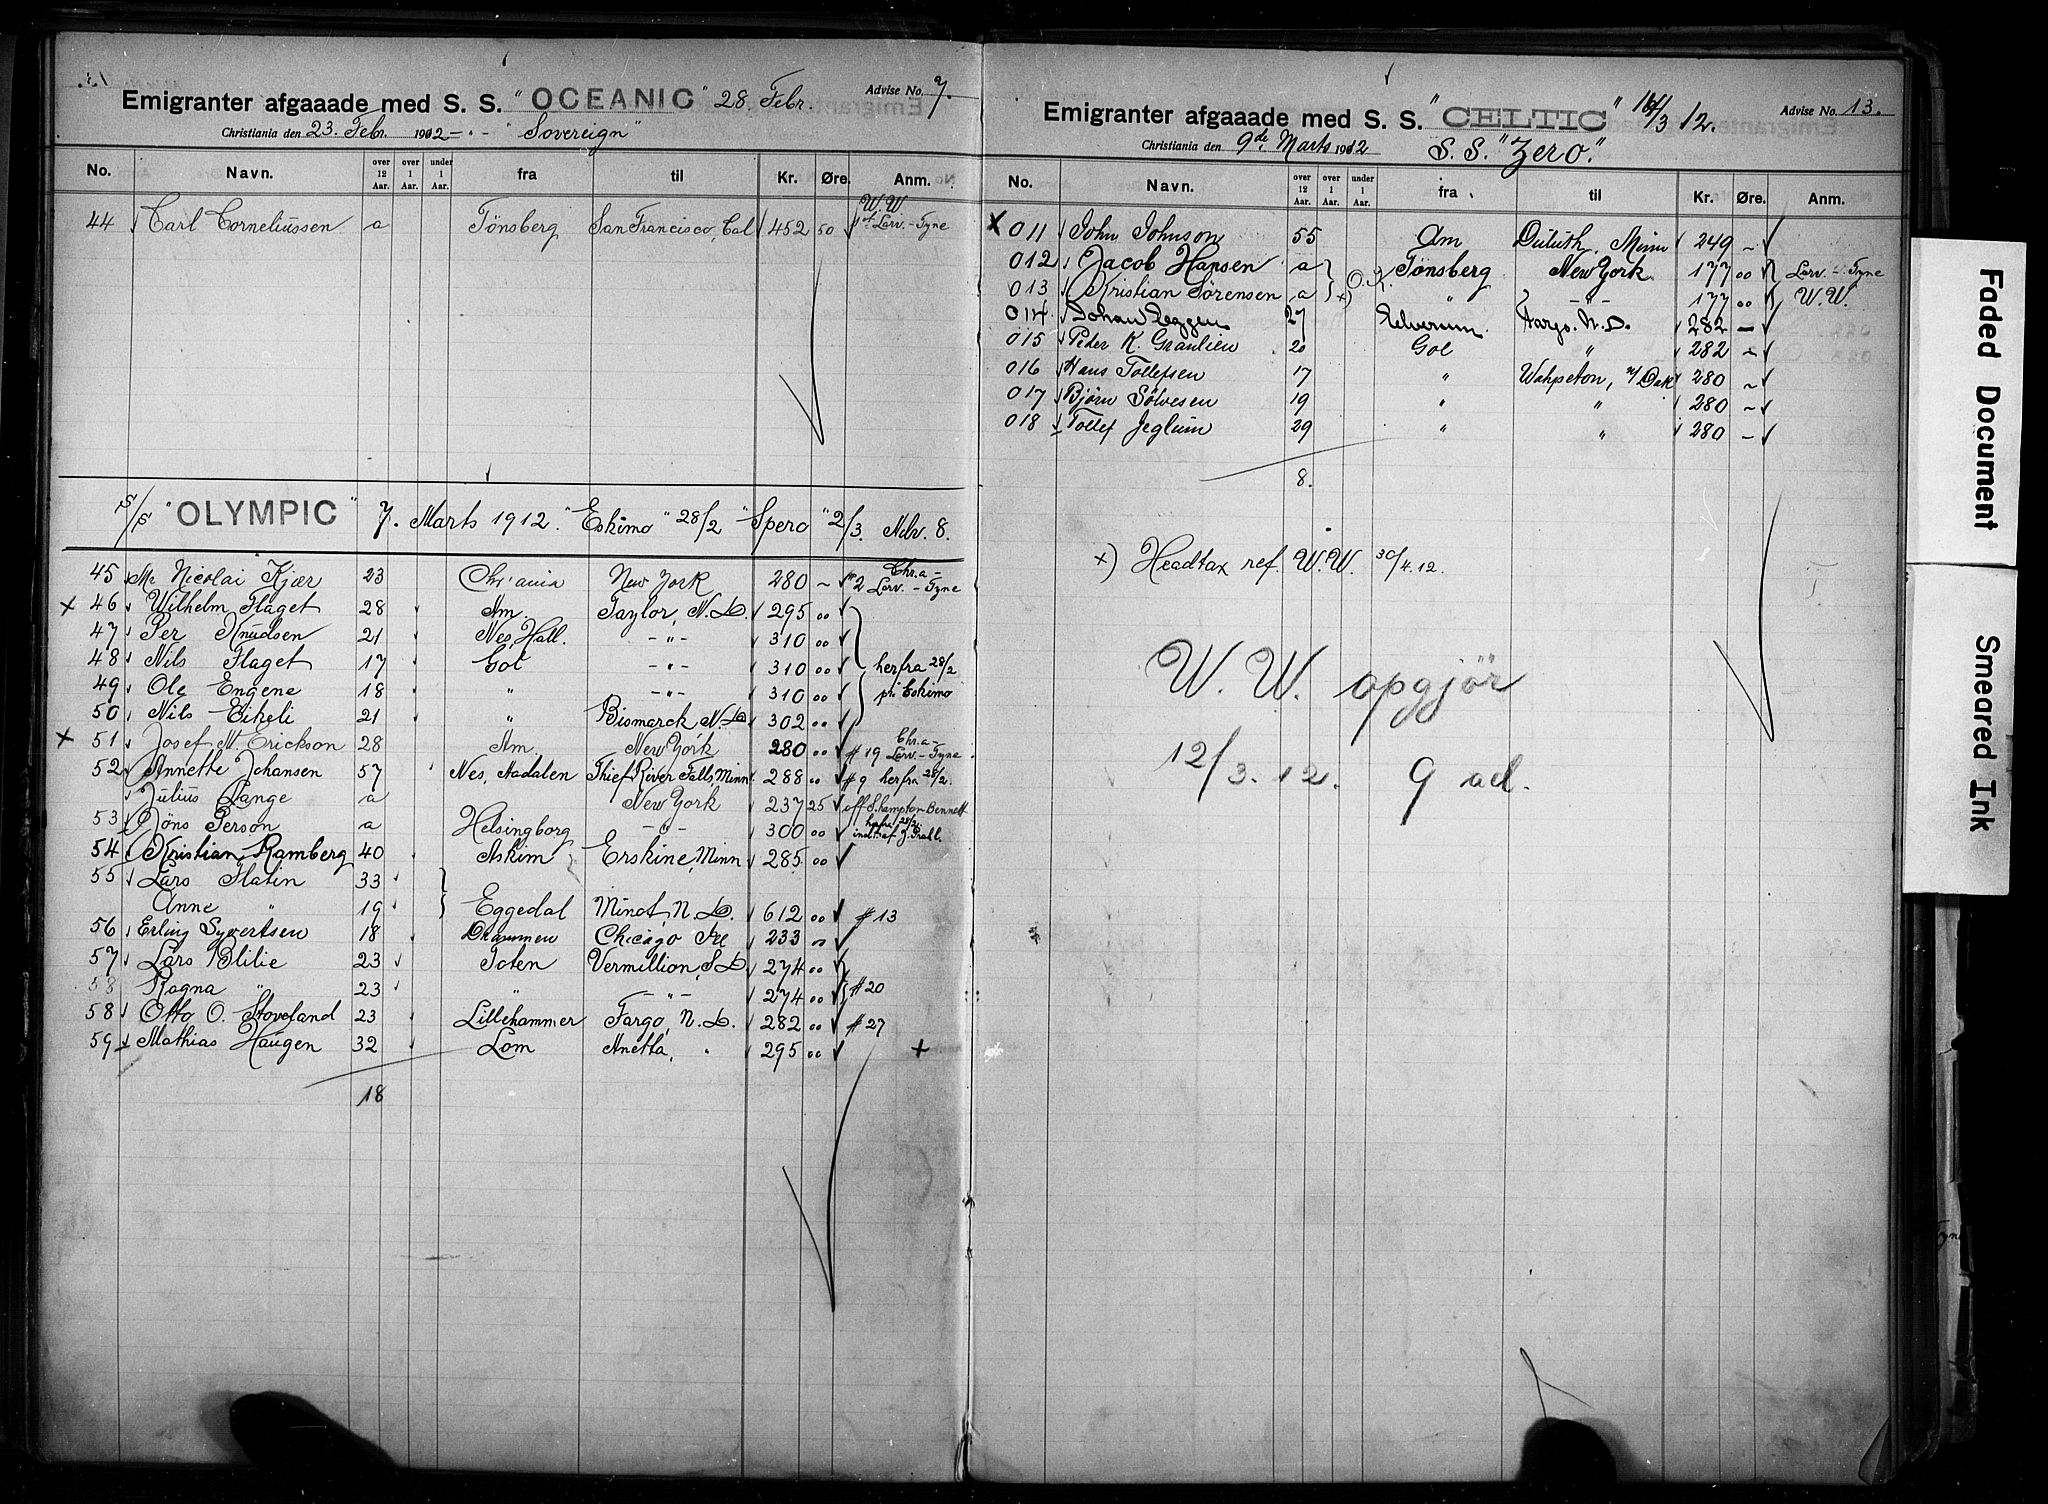 Emigranter afgaaade med S. S. "OCEANIC" 28. Febr. Advise No. 7.
Christiania den 23. Febr. 1912 - " - "Sovereign"
No. Navn. over 12 Aar. over 1 Aar. under 1 Aar. fra til Kr. Øre. Anm.
W. W.
44 Carl Corneliussen a Tönsberg San Francisco, Cal 452 50 Larv. - Tyne
S/S "OLYMPIC" 7. Marts 1912. "Eskimo" 28/2 "Spero" 2/3. Adv. 8.
45 Mr Nicolai Kjær 23 Chr.ania New York 280 ~ #2 Chr.a - Larv. - Tyne
x 46 Wilhelm Flaget 28 Am. Taylor, N. D. 295 00
47 Per Knudsen 21 Nes, Hall. - " - 310 00
48 Nils Flaget 17 Gol - " - 310 00 herfra 28/2
49 Ole Engene 18 " - " - 310 00 pr Eskimo
50 Nils Eikeli 21 " Bismarck, N. D. 302 00
x 51 Josef M. Erickson 28 Am. New York 280 00 #19 Chr.a - Larv. - Tyne
52 Annette Johansen 57 Nes, Aadalen Thief River Falls, Minn 288 00 #9 herfra 28/2.
Julius Lange a New York 237 25 off S.hampton Bennett
53 Jöns Person a Helsingborg - " - 300 00 herfra 28/2.
54 Kristian Ramberg 40 Askim Erskine, Minn 285 00
55 Lars Slatin 33
Anne " 19 Eggedal Minot, N. D. 612 00 #13
56 Erling Syvertsen 18 Drammen Chicago Ill 233 00
57 Lars Blilie 23 Toten Vermillion, S. D. 274 00
58 Ragna " 23 " - " - 274 00 #20
58 Otto O. Stoveland 23 Lillehammer Fargo, N. D. 282 00 #27
59 Mathias Haugen 32 Lom Anetta, " 295 00 +
18
Emigranter afgaaade med S. S. "CELTIC" 14/3 12. Advise No. 13.
Christiania den 9de Marts 1912 S. S. "Zero".
No. Navn. over 12 Aar. over 1 Aar. under 1 Aar. fra til Kr. Øre. Anm.
x 011 John Johnson 55 Am Duluth, Minn 249 ~
012 Jacob Hansen a O. K. Tønsberg New York 177 00 Larv. - Tyne
013 Kristian Sörensen a x) " - " - 177 00 W. W.
014 Johan Eggen 27 Elverum Fargo. N. D. 282 -
015 Peder K. Granlien 20 Gol " 282 ~
016 Hans Tollefsen 17 " Wahpeton, N/Dak 280 ~
017 Bjørn Sölvesen 19 " " 280 ~
018 Tollef Jeglum 29 " " 280 ~
8.
x) Headtax ref. W. W. 30/4. 12.
W. W. opgjör
12/3. 12. 9 ad.
Faded Document
Smeared Ink